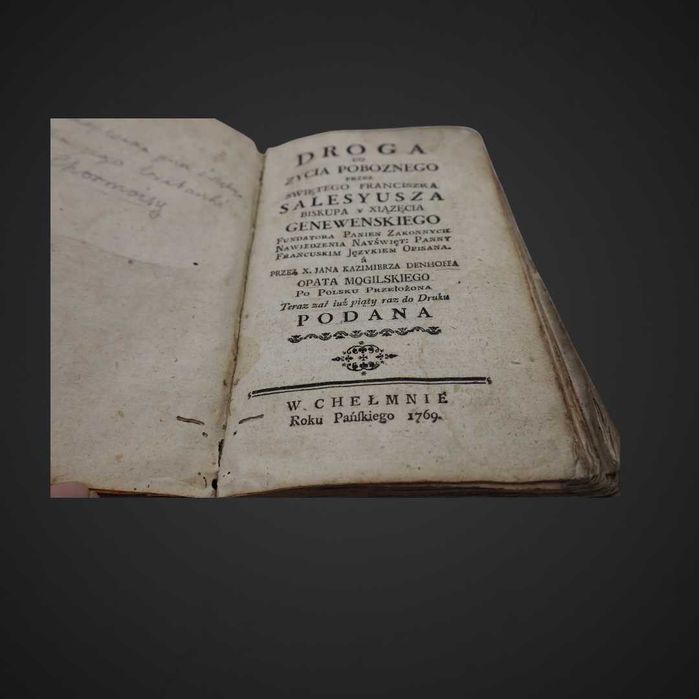 DROGA
DO
ZYCIA POBOZNEGO
PRZEZ
SWIĘTEGO FRANCISZKA
SALESYUSZA
BISKUPA Y XIĄZĘCIA
GENEWENSKIEGO
FUNDATORA PANIEN ZAKONNYCH
NAWIEDZENIA NAYŚWIĘT: PANNY
FRANCUSKIM JĘZYKIEM OPISANA.
á
PRZEZ X. JANA KAZIMIERZA DENHOFFA
OPATA MOGILSKIEGO
PO POLSKU PRZEŁOŻONA
Teraz zaś iuż piąty raz do Druku
PODANA
W CHEŁMNIE
Roku Pańskiego 1769.